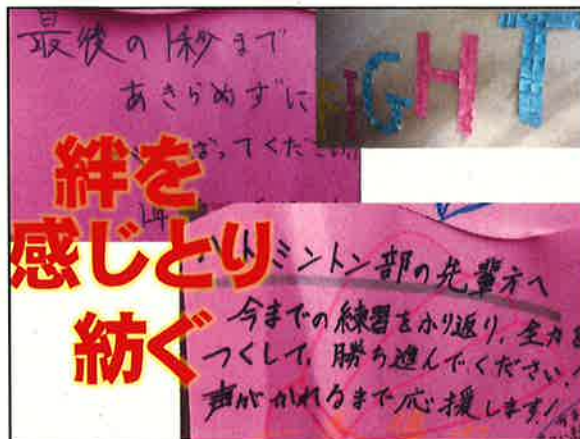 最後の1秒まで
あきらめずに
ばってくださ
FIGHT
絆を
感じとり
紡ぐ
バドミントン部の先輩方へ
今までの練習をふり返り、全力を
つくして、勝ち進んでください!
声がかれるまで応援します!